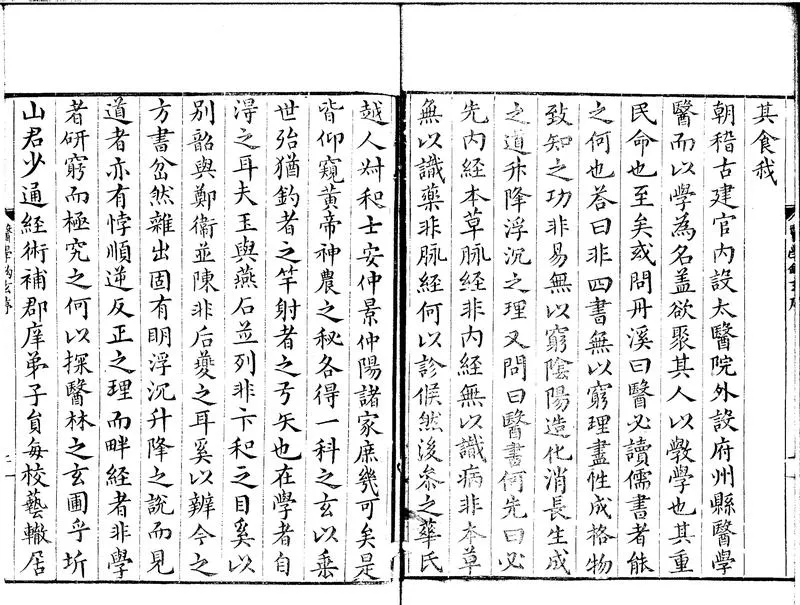 其食哉
朝稽古建官內設太醫院外設府州縣醫學
醫而以學為名盖欲聚其人以斆學也其重
民命也至矣或問丹溪曰醫必讀儒書者能
之何也荅曰非四書無以窮理盡性成格物
致知之功非易無以窮隂陽造化消長生成
之道升降浮沉之理又問曰醫書何先曰必
先内経本草脉経非内経無以識病非本草
無以識藥非脉経何以診候然後叅之華氏
越人叔和士安仲景仲陽諸家庶幾可矣是
皆仰窺黃帝神農之秘各得一科之玄以垂
世殆猶釣者之竿射者之弓矢也在學者自
淂之耳夫玉與燕石並列非卞和之目奚以
别韶與鄭衛並陳非后夔之耳奚以辨今之
方書岔然雜出固有明浮沉升降之說而見
道者亦有悖順逆反正之理而畔経者非學
者研窮而極究之何以探醫林之玄圃乎圻
山君少通経術補郡庠弟子貟每校藝轍居